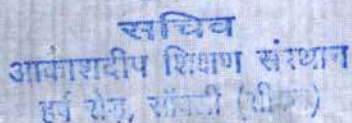 सचिव
आकाशदीप शिक्षण संस्थान
हर्ष रोड, सांवली (सीकर)